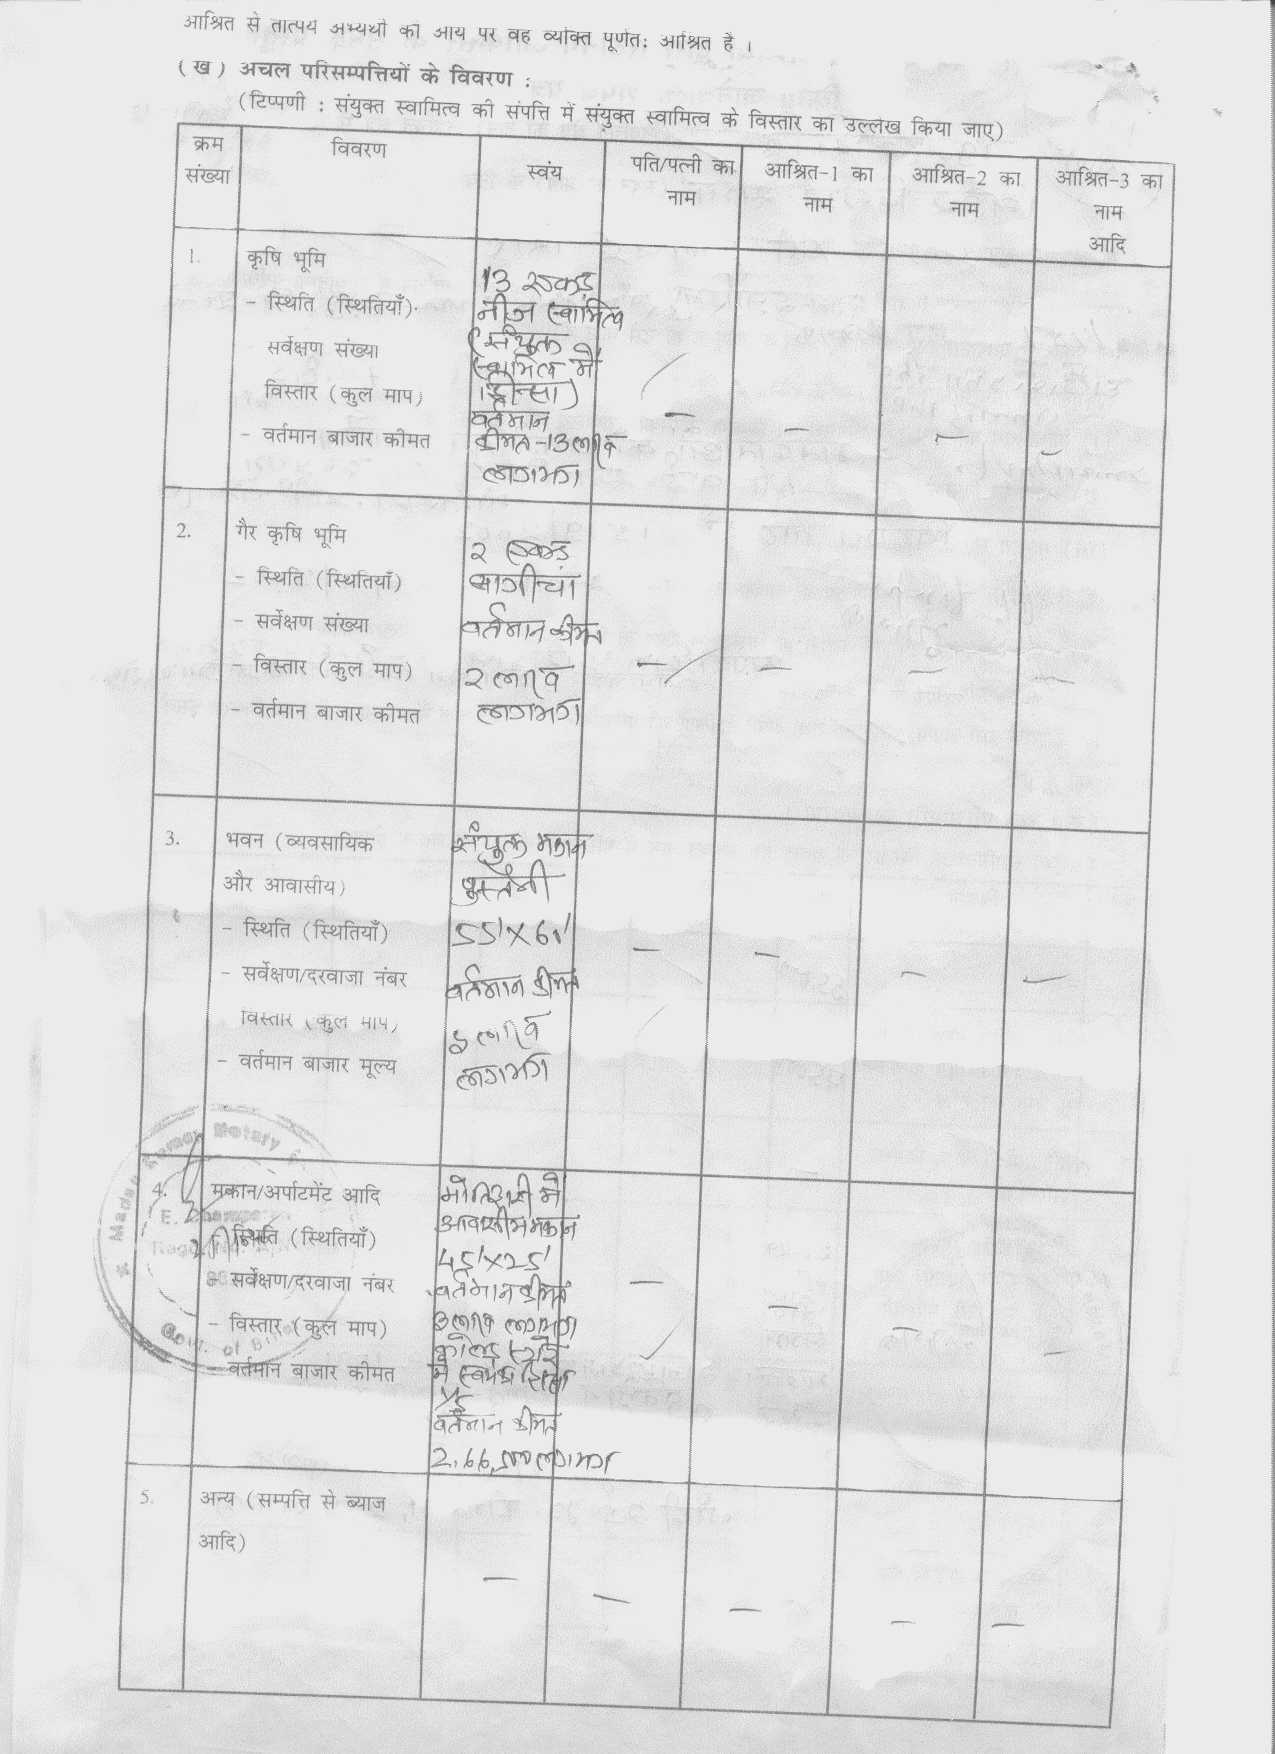 आश्रित से तात्पर्य अभ्यर्थी की आय पर वह व्यक्ति पूर्णतः आश्रित है ।
(ख) अचल परिसम्पत्तियों के विवरण :
(टिप्पणी : संयुक्त स्वामित्व की संपत्ति में संयुक्त स्वामित्व के विस्तार का उल्लेख किया जाए)
क्रम संख्या
विवरण
स्वंय
पति/पत्नी का नाम
आश्रित-1 का नाम
आश्रित-2 का नाम
आश्रित-3 का नाम आदि
1.
कृषि भूमि
- स्थिति (स्थितियाँ)
सर्वेक्षण संख्या
विस्तार (कुल माप)
- वर्तमान बाजार कीमत
13 एकड़
नीज स्वामित्व
(संयुक्त
स्वामित्व में
वर्तमान
कीमत-13 लाख
लगभग
–
–
–
–
2.
गैर कृषि भूमि
- स्थिति (स्थितियाँ)
- सर्वेक्षण संख्या
- विस्तार (कुल माप)
- वर्तमान बाजार कीमत
2 एकड़
बागीचा
वर्तमान कीमत
2 लाख
लगभग
–
–
–
–
3.
भवन (व्यवसायिक
और आवासीय)
- स्थिति (स्थितियाँ)
- सर्वेक्षण/दरवाजा नंबर
विस्तार (कुल माप)
- वर्तमान बाजार मूल्य
संयुक्त मकान
पुस्तैनी
वर्तमान कीमत
लाख
लगभग
–
–
–
–
4.
मकान/अर्पाटमेंट आदि
स्थिति (स्थितियाँ)
- सर्वेक्षण/दरवाजा नंबर
- विस्तार (कुल माप)
वर्तमान बाजार कीमत
मोतिहारी में
आवासीय मकान
45'x25'
वर्तमान कीमत
3 लाख लगभग
कोल्ड स्टोरेज
में स्वयं का हिस्सा
वर्तमान कीमत
लगभग
–
–
–
–
Notary
Govt. of Bihar
5.
अन्य (सम्पत्ति से ब्याज
आदि)
–
–
–
–
–